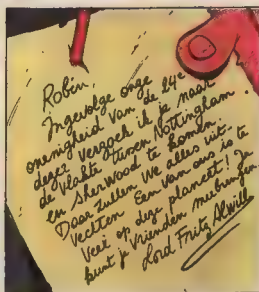 Robin,
Ingevolge onge
onenigheid van de 24e
dezer verzoek ik je naar
de vlakte tussen Nottingham
en Sherwood te komen.
Daar zullen we alles uit-
vechten. Een van ons is te
veel op deze planeet! Je
kunt je vrienden meebrengen
Lord Fritz Alwill